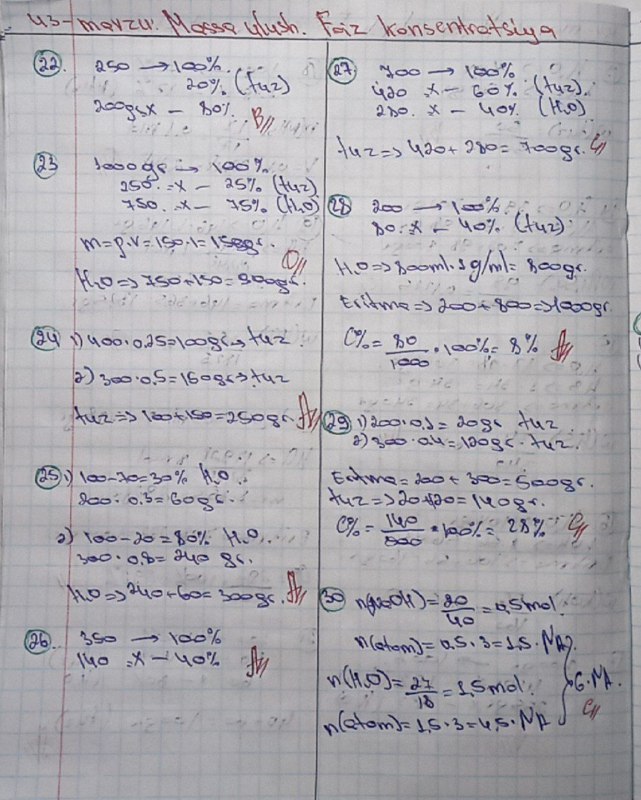 43-mavzu. Massa ulush. Foiz konsentratsiya
22. 250 → 100%.
20% (tuz)
200gr x – 80%. B//
23 1000gr → 100%.
250. =x – 25% (tuz)
750. =x – 75% (H₂O)
m=ρ.v=150.1=150gr.
H₂O=>750+150=900gr. D//
24 1) 400·0,25=100gr→tuz
2) 300·0,5=150gr→tuz
tuz=>100+150=250gr. A//
25 1) 100-70=30% H₂O.
200·0,3=60gr.
2) 100-20=80% H₂O.
300·0,8=240 gr.
H₂O=>240+60=300gr. A//
26. 350 → 100%
140 =x – 40% A//
27. 700 → 100%
420 x – 60% (tuz).
280. x – 40% (H₂O)
tuz=>420+280=700gr. C//
28 200 → 100%
80. x – 40% (tuz)
H₂O=>800ml.1g/ml=800gr.
Eritma=>200+800=>1000gr.
C%=80/1000·100%=8% A//
29 1) 200·0,1=20gr tuz
2) 300·0,4=120gr. tuz.
Eritma=200+300=500gr.
tuz=>20+120=140gr.
C%=140/500·100%=28% C//
30 n(NaOH)=20/40=0,5mol.
n(atom)=0,5·3=1,5·NA
n(H₂O)=27/18=1,5mol.
6·NA. C//
n(atom)=1,5·3=4,5·NA